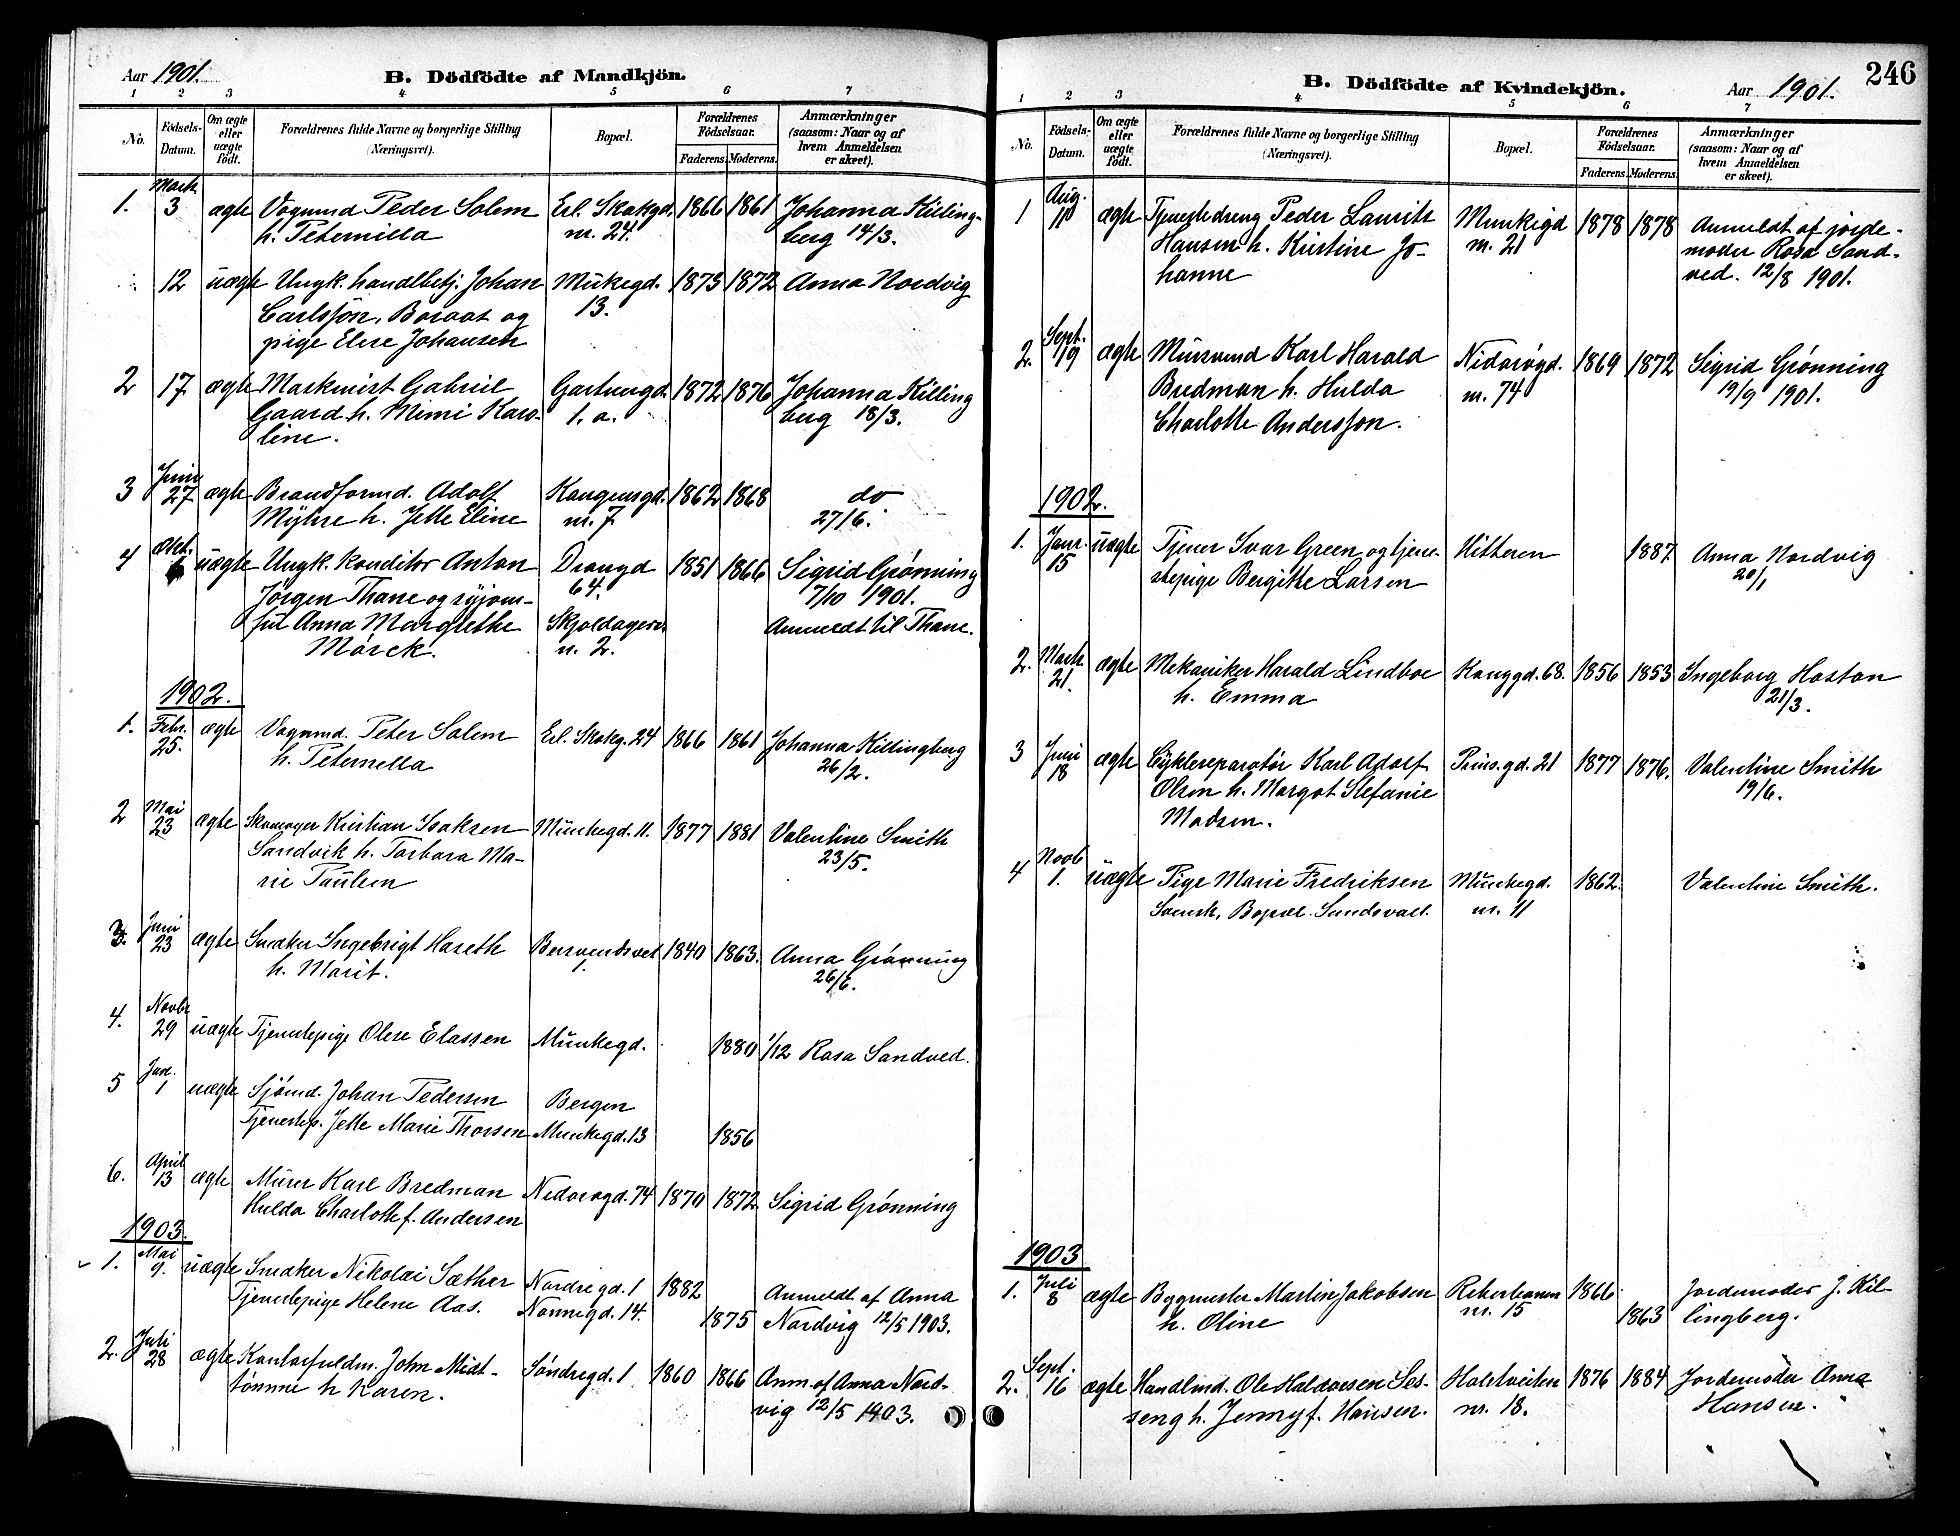 Aar 1901.
B. Dödfödte af Mandkjön.
1 2 3 4 5 6 7
No.
Födsels-Datum.
Om ægte eller uægte födt.
Forældrenes fulde Navne og borgerlige Stilling (Næringsvei).
Bopæl.
Forældrenes Födselsaar.
Faderens. Moderens.
Anmærkninger (saasom: Naar og af hvem Anmeldelsen er skeet).
Marts
1. 3 ægte Vognmd Peder Solem Erl. Skakgd. 1866 1861 Johanna Killing-
h. Peternilla nr. 24. berg 14/3.
12 uægte Ungk. handlbetj. Johan Munkegd. 1873 1872 Anna Nordvig
Carlsson, og 13.
pige Elise Johansen
2 17 ægte Gabriel 1872 1876 Johanna Killing
Gaard h. Mimi Karo- 1. a. berg 18/3.
line.
Juni
3 27 ægte Brandformd. Adolf Kongensgd. 1862 1868 do
Myhre h. Jette Eline nr. 7 27/6.
Okt.
4 uægte Ungk. konditor Anton Drongd 1851 1866 Sigrid Grønning
Jörgen Thane og syjom- 64. 7/10 1901.
fru Anna Margrethe Anmeldt til Thane.
Mörck. n. 2.
1902.
1. Febr. ægte Vognmd. Peter Solem Erl. Skakg. 24 1866 1861 Johanna Killingberg
25. h. Peternella 26/2.
Mai
2 23 ægte Skomager Kristian Isaksen Munkegd. 11. 1877 1881 Valentine Smith
Sandvik h. Torbora Ma- 23/5.
rie Paulsen
Juni
3. 23 ægte Snekker Ingebrigt Hareth 1840 1863. Anna Grønning
h. Marit. 1. 26/6.
Novbr
4. 29 uægte Tjenestepige Oline Elassen Munkegd. 1880 1/12 Rosa Sandved.
5 1 uægte Sjömd. Johan Pedersen Bergen
Tjenestep. Jette Marie Thorsen Munkegd. 13 1856
April
6. 13 ægte Murer Karl Bredman Nidarøgd. 74 1870 1872 Sigrid Grønning
Hulda Charlotte f. Andersen
1903.
Mai
1. 9. uægte Snekker Nikolai Sæther Nordregd. 1 1882 Anmeldt af Anna
Tjenestepige Helene Aas. Nonnegd. 14. 1875 Nordvig 12/5 1903.
Juli
2. 28 ægte Kontorfuldm. John Midt- Söndregd. 1 1860 1866 Anm. af Anna Nord-
tömme h Karen. vig 12/5 1903.
246
B. Dödfödte af Kvindekjön.
Aar 1901.
1 2 3 4 5 6 7
No.
Födsels-Datum.
Om ægte eller uægte födt.
Forældrenes fulde Navne og borgerlige Stilling (Næringsvei).
Bopæl.
Forældrenes Födselsaar.
Faderens. Moderens.
Anmærkninger (saasom: Naar og af hvem Anmeldelsen er skeet).
Aug.
1 11 ægte Tjenestedreng Peder Laurits Munkegd 1878 1878 Anmeldt af jorde-
Hansen h. Kristine Jo- nr. 21 moder Rosa Sand-
hanne ved. 12/8 1901.
Sept.
2. 19 ægte Murmand Karl Harald Nidarøgd. 1869 1872 Sigrid Grønning
Bredman h. Hulda nr. 74 19/9 1901.
Charlotte Andersson.
1902.
1. Janr. uægte Tjener Ivar Green, og tjene- Hitteren 1887 Anna Nordvig
15 stepige Bergitte Larsen 20/1
2. Marts ægte Mekaniker Harald Lindboe Konggd. 68. 1856 1853 Ingeborg Hoston
21. h. Emma 21/3.
3 Juni ægte Cyklereparatør Karl Adolf Prins.gd. 21 1877 1876. Valentine Smith
18 Olsen h. Margot Stefanie 19/6.
Madsen.
Novb
4 1. uægte Pige Marie Fredriksen Munkegd. 1862. Valentine Smith.
Svensk, Bopæl. Sundsvall. nr. 11
1903
1. Juli ægte Bygmester Martin Jakobsen 1866 Jordemoder J. Kil-
8 h. Oline nr. 15 1863 lingberg.
Sept.
2. 16 ægte Handlmd. Ole Haldorsen Ses- 1876 1884 Jordemoder Anna
seng h. Jenny f. Hansen. nr. 18. Hansen.